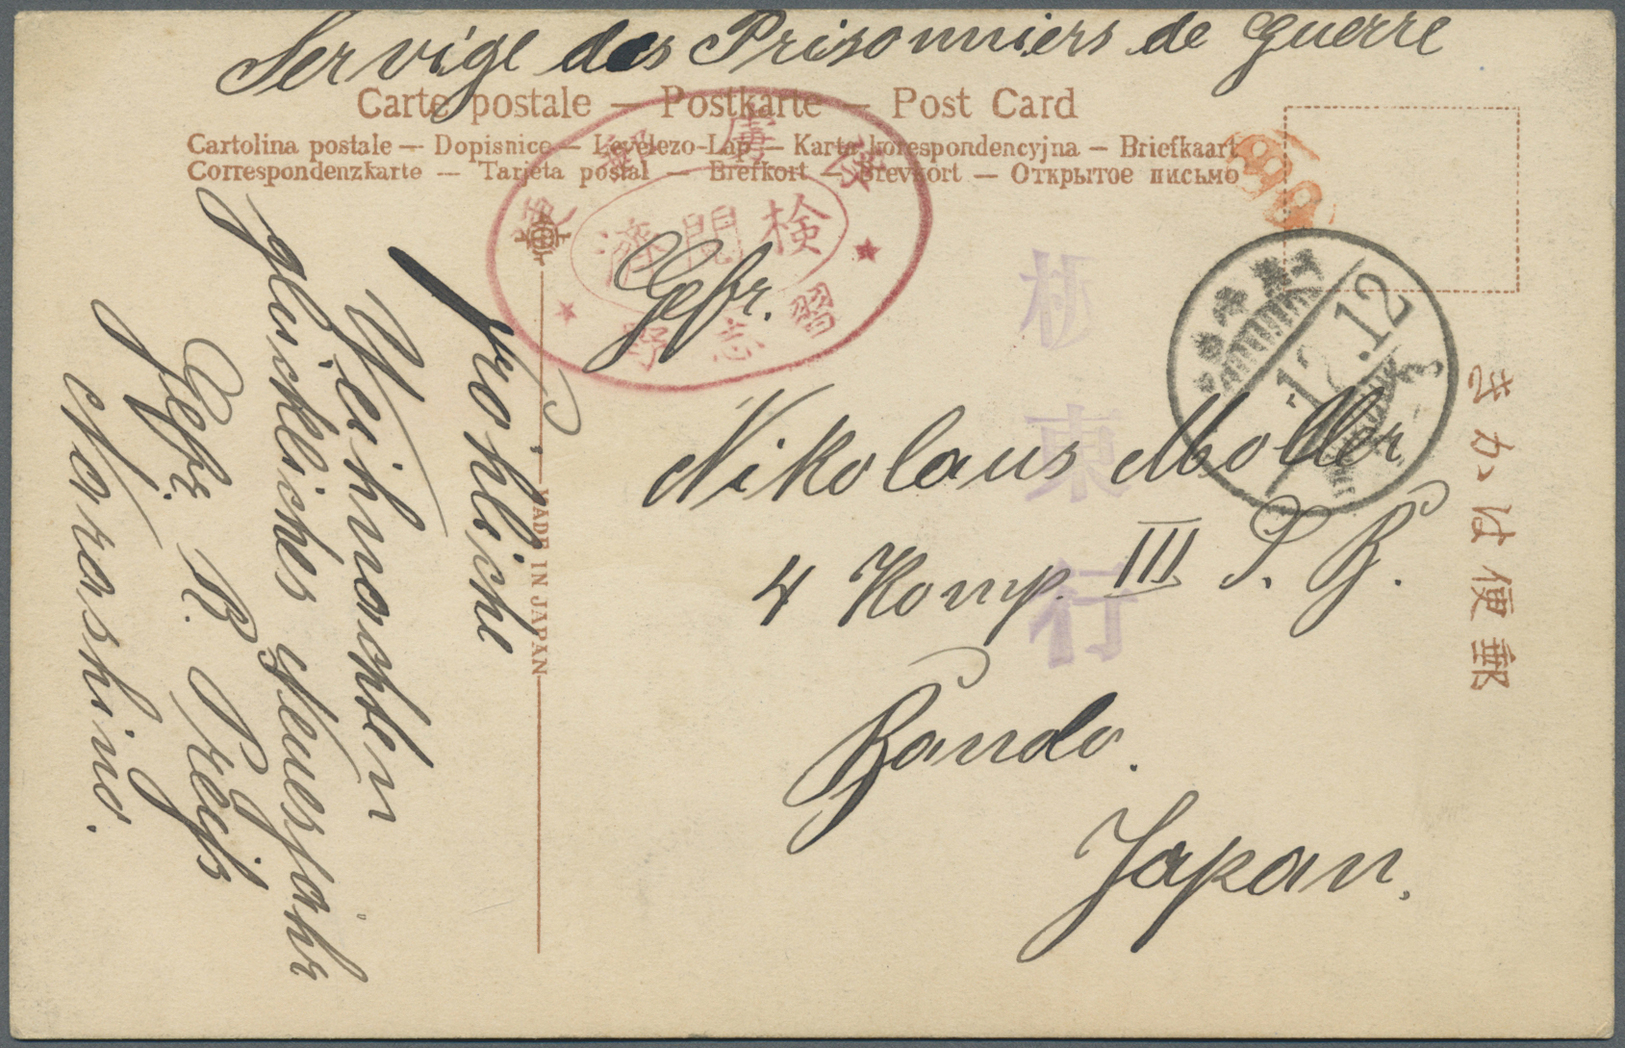 Servige des Prisonniers de Guerre
Carte postale — Postkarte — Post Card
Cartolina postale — Dopisnice — Levelezo-Lap — Karta korespondencyjna — Briefkaart
Correspondenzkarte — Tarjeta postal — Brefkort — Brevkort — Открытое письмо
俘虜郵便
検閲済
習志野
板東行
12.12
郵便はかき
MADE IN JAPAN
Gefr.
Nikolaus Moller
4 Komp. III S. B.
Bando.
Japan.
Fröhliche
Weihnachten
glückliches Neuesjahr
Gefr. R. Preeß
Narashino.